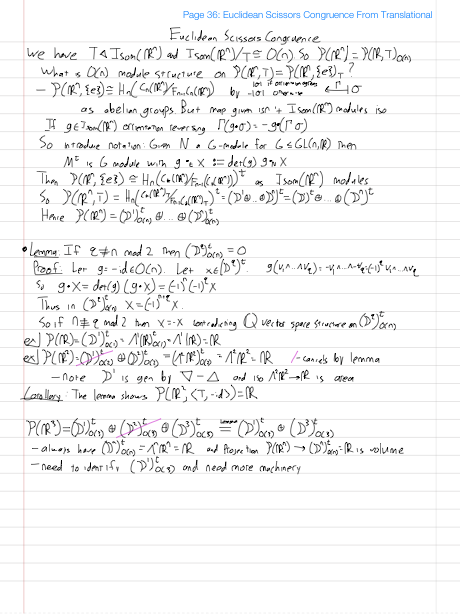 Page 36: Euclidean Scissors Congruence From Translational
Euclidean Scissors Congruence
We have T ⊲ Isom(ℝⁿ) and Isom(ℝⁿ)/T ≅ O(n). So P(ℝⁿ) = P(ℝⁿ,T)_O(n)
What is O(n) module structure on P(ℝⁿ,T) = P(ℝⁿ,{e})_T ?
– P(ℝⁿ,{e}) ≅ Hₙ(C_*(ℝⁿ)/F_{n-1}C_*(ℝⁿ)) by
as abelian groups. But map given isn't Isom(ℝⁿ) modules iso
If g∈Isom(ℝⁿ) orientation reversing Γ(g•σ) = -g•(Γσ)
So introduce notation: Given N a G-module for G ≤ GL(n,ℝ) then
Mᵗ is G module with g •ₜ x := det(g) g •ₙ x
Then P(ℝⁿ,{e}) ≅ Hₙ(C_*(ℝⁿ)/F_{n-1}C_*(ℝⁿ))ᵗ as Isom(ℝⁿ) modules
So P(ℝⁿ,T) = Hₙ(C_*(ℝⁿ)/F_{n-1}C_*(ℝⁿ)_T)ᵗ = (D¹⊕…⊕Dⁿ)ᵗ = (D¹)ᵗ ⊕ … ⊕ (Dⁿ)ᵗ
Hence P(ℝⁿ) = (D¹)ᵗ_O(n) ⊕ … ⊕ (Dⁿ)ᵗ_O(n)
• Lemma: If q ≢ n mod 2 then (D^q)ᵗ_O(n) = 0
Proof: Let g = -id ∈ O(n). Let x∈(D^q)ᵗ. g(v₁∧…∧v_q) = -v₁∧…∧-v_q = (-1)^q v₁∧…∧v_q
So g•x = det(g)(g•x) = (-1)ⁿ(-1)^q x
Thus in (D^q)ᵗ_O(n) x = (-1)^{n+q} x.
So if n ≢ q mod 2 then x = -x contradicting ℚ vector space structure on (D^q)ᵗ_O(n)
ex) P(ℝ) = (D¹)ᵗ_O(1) = Λ¹(ℝ)ᵗ_O(1) = Λ¹(ℝ) = ℝ
ex) P(ℝ²) = (D¹)ᵗ_O(2) ⊕ (D²)ᵗ_O(2) = (Λ²ℝ²)ᵗ_O(2) = Λ²ℝ² = ℝ /-cancels by lemma
– note D¹ is gen by ▽ – △ and iso Λ²ℝ² → ℝ is area
Corollary: The lemma shows P(ℝ², <T,-id>) = ℝ
P(ℝ³) = (D¹)ᵗ_O(3) ⊕ (D²)ᵗ_O(3) ⊕ (D³)ᵗ_O(3) =^{lemma} (D¹)ᵗ_O(3) ⊕ (D³)ᵗ_O(3)
– always have (Dⁿ)ᵗ_O(n) = Λⁿℝⁿ = ℝ and Projection P(ℝⁿ) → (Dⁿ)ᵗ_O(n) = ℝ is volume
– need to identify (D¹)ᵗ_O(3) and need more machinery